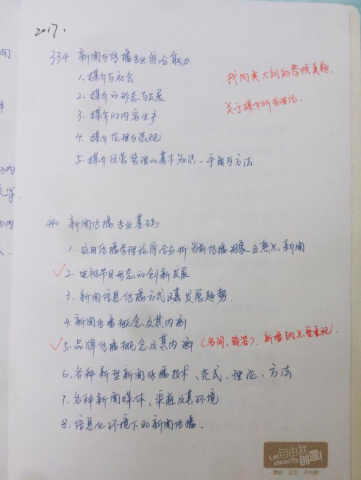 2017.
334 新闻与传播专业综合能力
1. 媒介与社会
2. 媒介的形态与发展
3. 媒介的内容生产
4. 媒介伦理与法规
5. 媒介经营管理的基本知识、手段与方法
找两类大纲的
真题
关于媒介的所有理论。
440 新闻传播专业基础
1. 运用传播学理论综合分析当前传播现象及热点新闻
✓2. 电视节目形态的创新发展
3. 新闻信息传播方式及其发展趋势
4. 新闻传播概念及其内涵
✓5. 品牌传播概念及其内涵 (名词、简答)
6. 各种新型新闻传播技术、范式、理论、方法
7. 各种新闻媒体、渠道及其环境
8. 信息化环境下的新闻传播.
Let
ideas fly
自由我
创意!